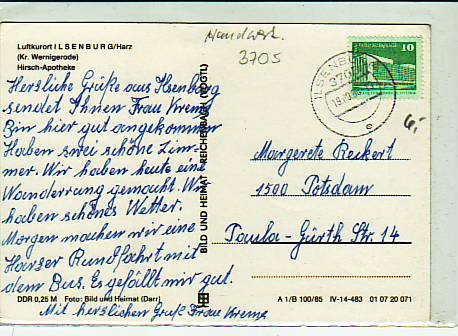 Handwerk.
3705
Luftkurort ILSENBURG/Harz
(Kr. Wernigerode)
Hirsch-Apotheke
Herzliche Grüße aus Ilsenburg
sendet Ihnen Frau Krems
Bin hier gut angekommen
Haben zwei schöne Zim-
mer. Wir haben heute eine
Wanderung gemacht. Wir
haben schönes Wetter.
Morgen machen wir eine
Harzer Rundfahrt mit
dem Bus. Es gefällt mir gut.
DDR 0,25 M Foto: Bild und Heimat (Darr)
Mit herzlichen Gruß Frau Krems
BILD UND HEIMAT REICHENBACH (VOGTL)
10
ILSENBURG
3705
Margarete Reikert
1500 Potsdam
Paula-Gürth Str. 14
A 1/B 100/85 IV-14-483 01 07 20 071